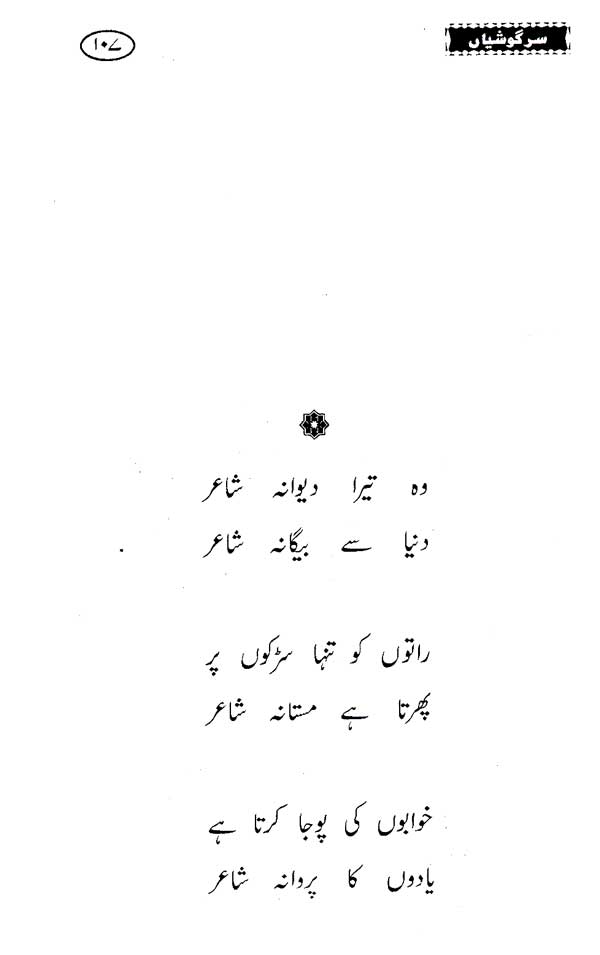 سرگوشیاں
۱۰۷
وہ تیرا دیوانہ شاعر
دنیا سے بیگانہ شاعر
راتوں کو تنہا سڑکوں پر
پھرتا ہے مستانہ شاعر
خوابوں کی پوجا کرتا ہے
یادوں کا پروانہ شاعر